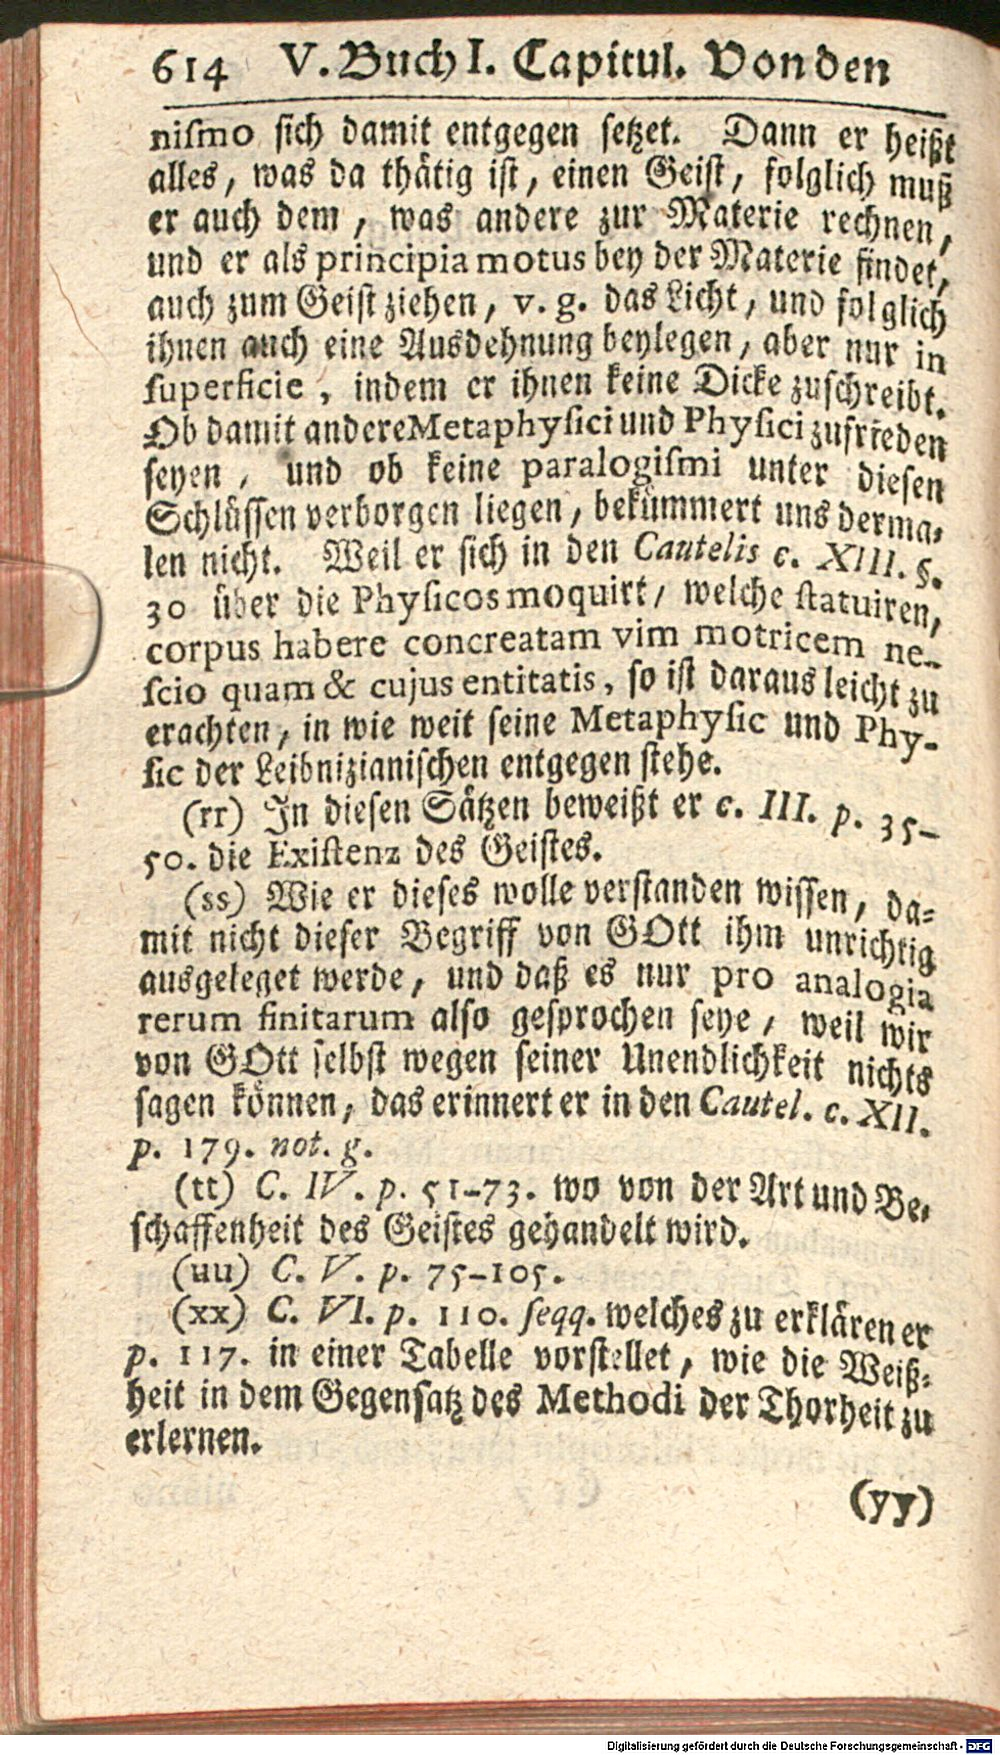 614 V. Buch I. Capitul. Von den
nismo sich damit entgegen setzet. Dann er heißt
alles, was da thätig ist, einen Geist, folglich muß
er auch dem, was andere zur Materie rechnen,
und er als principia motus bey der Materie findet,
auch zum Geist ziehen, v. g. das Licht, und folglich
ihnen auch eine Ausdehnung beylegen, aber nur in
superficie, indem er ihnen keine Dicke zuschreibt.
Ob damit andere Metaphysici und Physici zufrieden
seyen, und ob keine paralogismi unter diesen
Schlüssen verborgen liegen, bekümmert uns derma-
len nicht. Weil er sich in den Cautelis c. XIII. §.
30 über die Physicos moquirt, welche statuiren,
corpus habere concreatam vim motricem ne-
scio quam & cujus entitatis, so ist daraus leicht zu
erachten, in wie weit seine Metaphysic und Phy-
sic der Leibnizianischen entgegen stehe.
(rr) In diesen Sätzen beweißt er c. III. p. 35-
50. die Existenz des Geistes.
(ss) Wie er dieses wolle verstanden wissen, da-
mit nicht dieser Begriff von GOtt ihm unrichtig
ausgeleget werde, und daß es nur pro analogia
rerum finitarum also gesprochen seye, weil wir
von GOtt selbst wegen seiner Unendlichkeit nichts
sagen können, das erinnert er in den Cautel. c. XII.
p. 179. not. g.
(tt) C. IV. p. 51-73. wo von der Art und Be-
schaffenheit des Geistes gehandelt wird.
(uu) C. V. p. 75-105.
(xx) C. VI. p. 110. seqq. welches zu erklären er
p. 117. in einer Tabelle vorstellet, wie die Weiß-
heit in dem Gegensatz des Methodi der Thorheit zu
erlernen.
(yy)
Digitalisierung gefördert durch die Deutsche Forschungsgemeinschaft - DFG